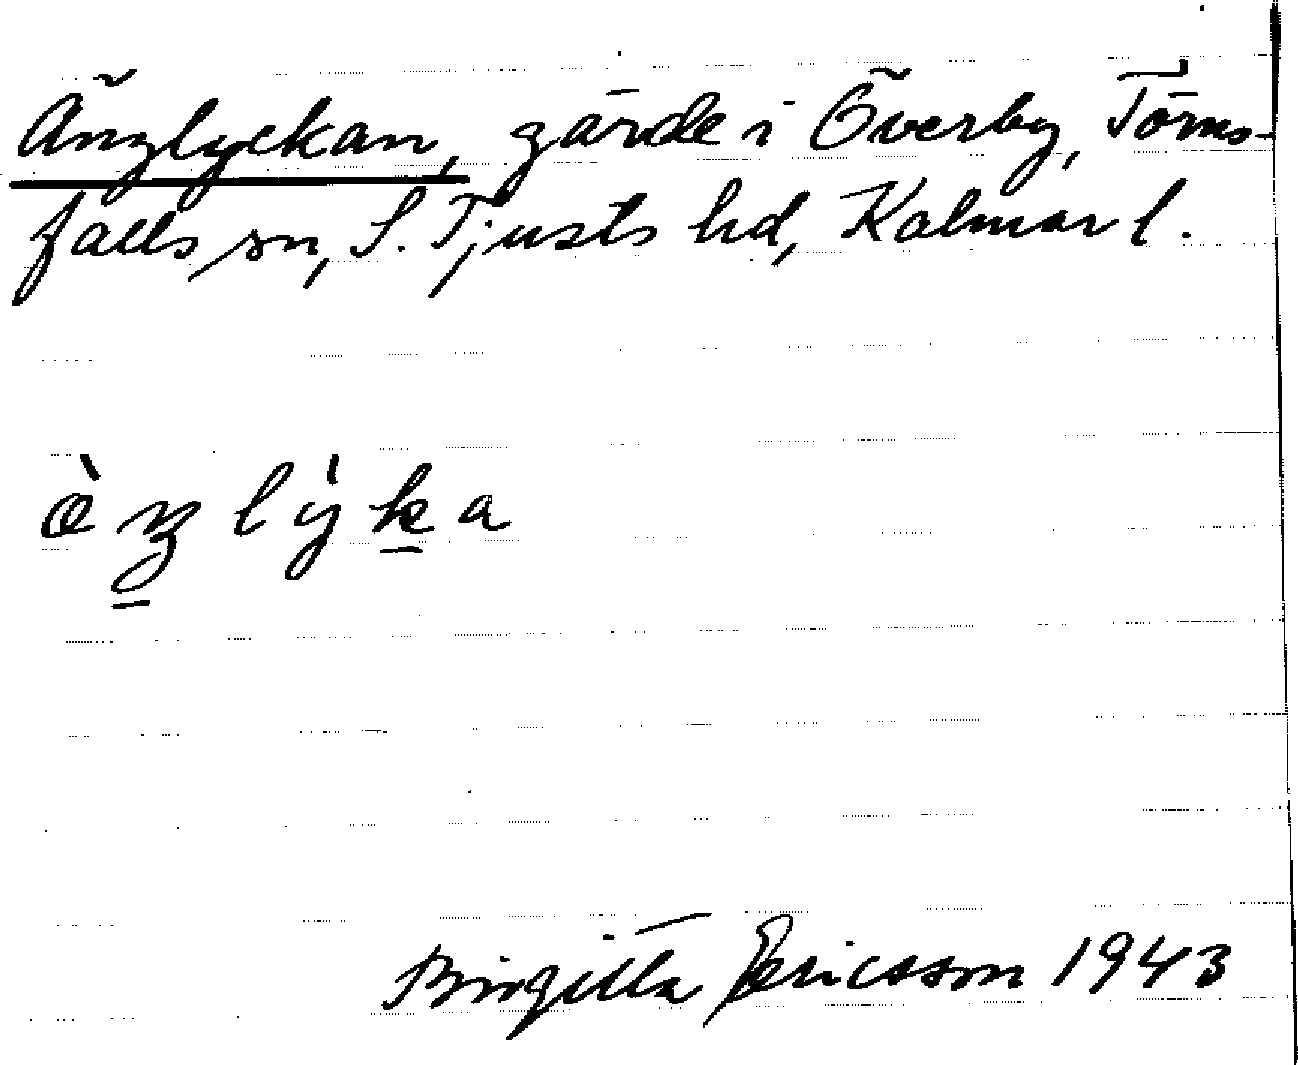 Änglyckan, gärde i Överby, Törns-
falls sn, S. Tjusts hd, Kalmar l.
Birgitta Ericsson 1943